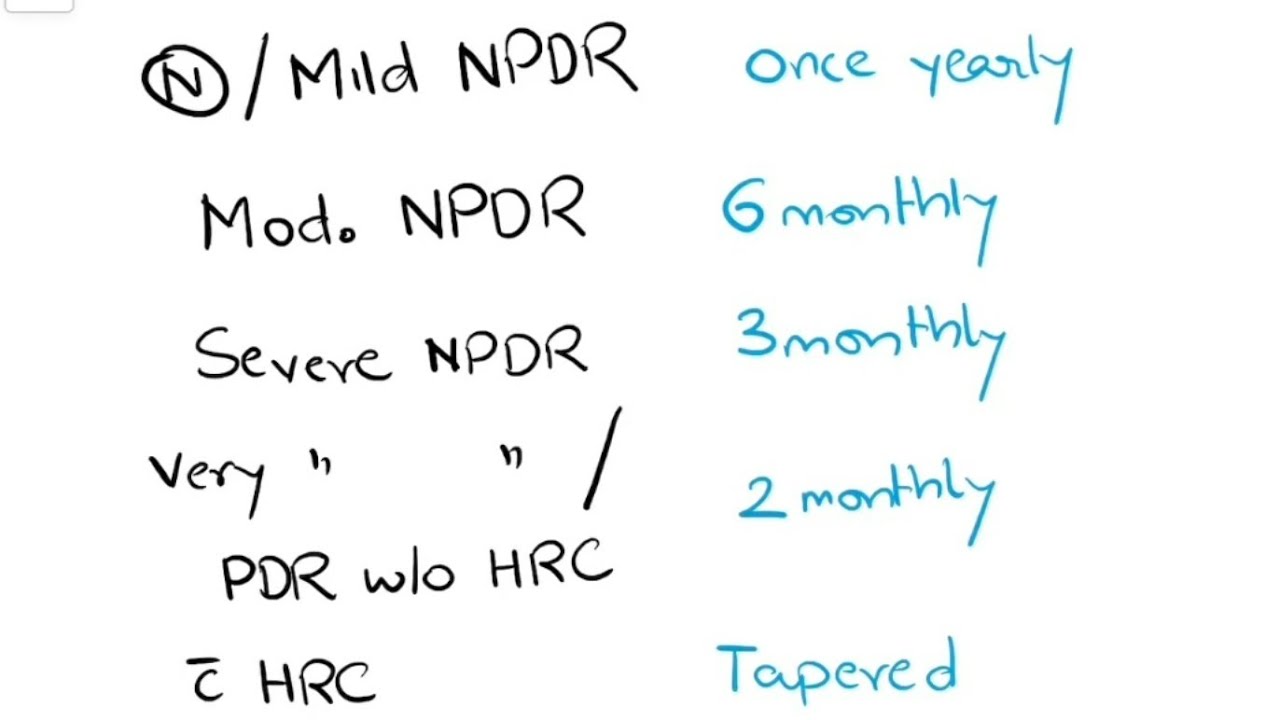 Ⓝ / Mild NPDR once yearly
Mod. NPDR 6 monthly
Severe NPDR 3 monthly
Very " " / 2 monthly
PDR w/o HRC
c̄ HRC Tapered